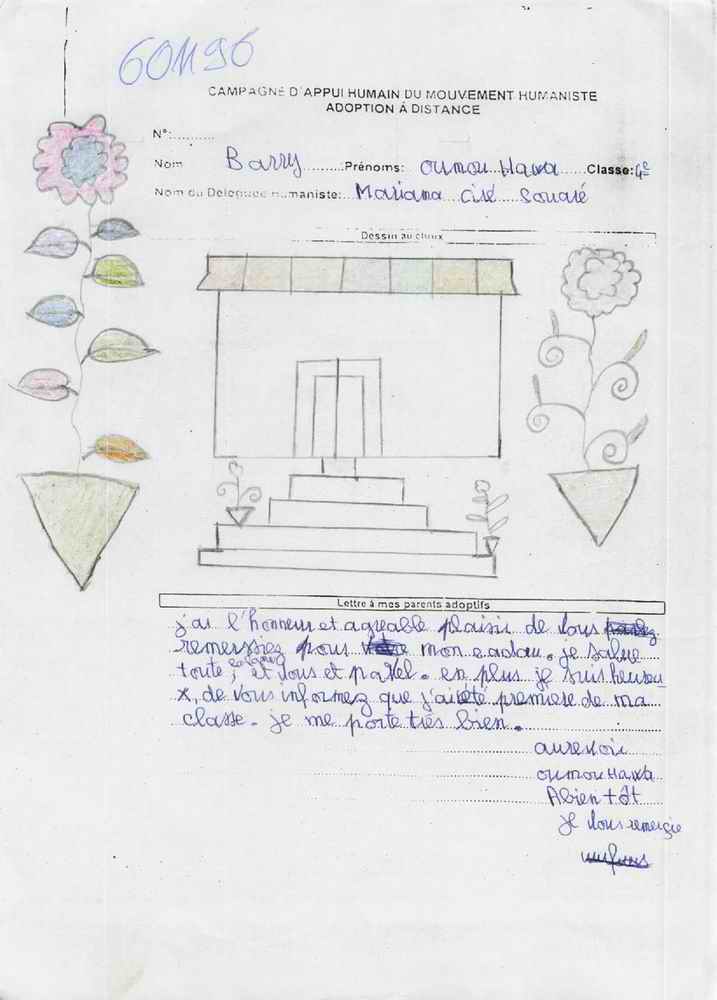 601196
CAMPAGNE D'APPUI HUMAIN DU MOUVEMENT HUMANISTE
ADOPTION À DISTANCE
N°:..........
Nom Barry Prénoms: oumou Hawa Classe: 4e
Nom du Délégué humaniste: Mariama ciré Souaré
Dessin au choix
Lettre à mes parents adoptifs
j'ai l'honneur et agreable plaisir de vous
remerssiez pour mon cadau. je salue
toute, et vous et en plus je suis heureu
x, de vous informez que j'ai été premiere de ma
classe. je me porte très bien.
aurevoir
oumou Hawa
Abientôt
je vous remercie